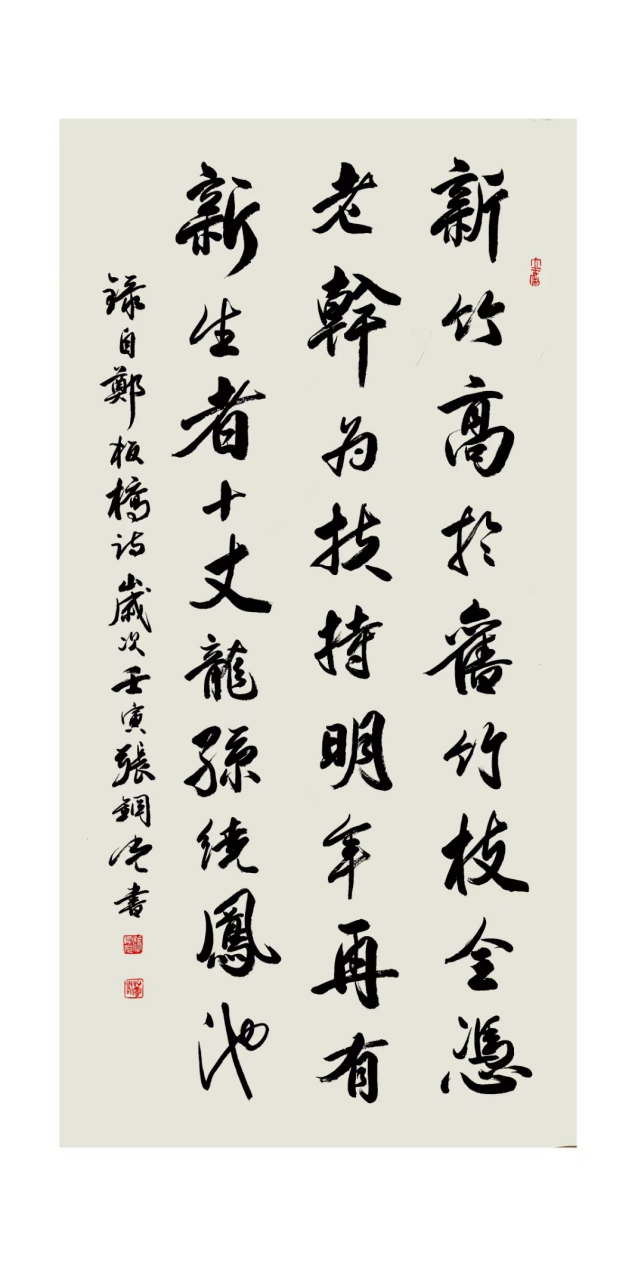 新竹高於舊竹枝全憑
老幹為扶持明年再有
新生者十丈龍孫繞鳳池
錄自鄭板橋詩歲次壬寅張鋼亮書